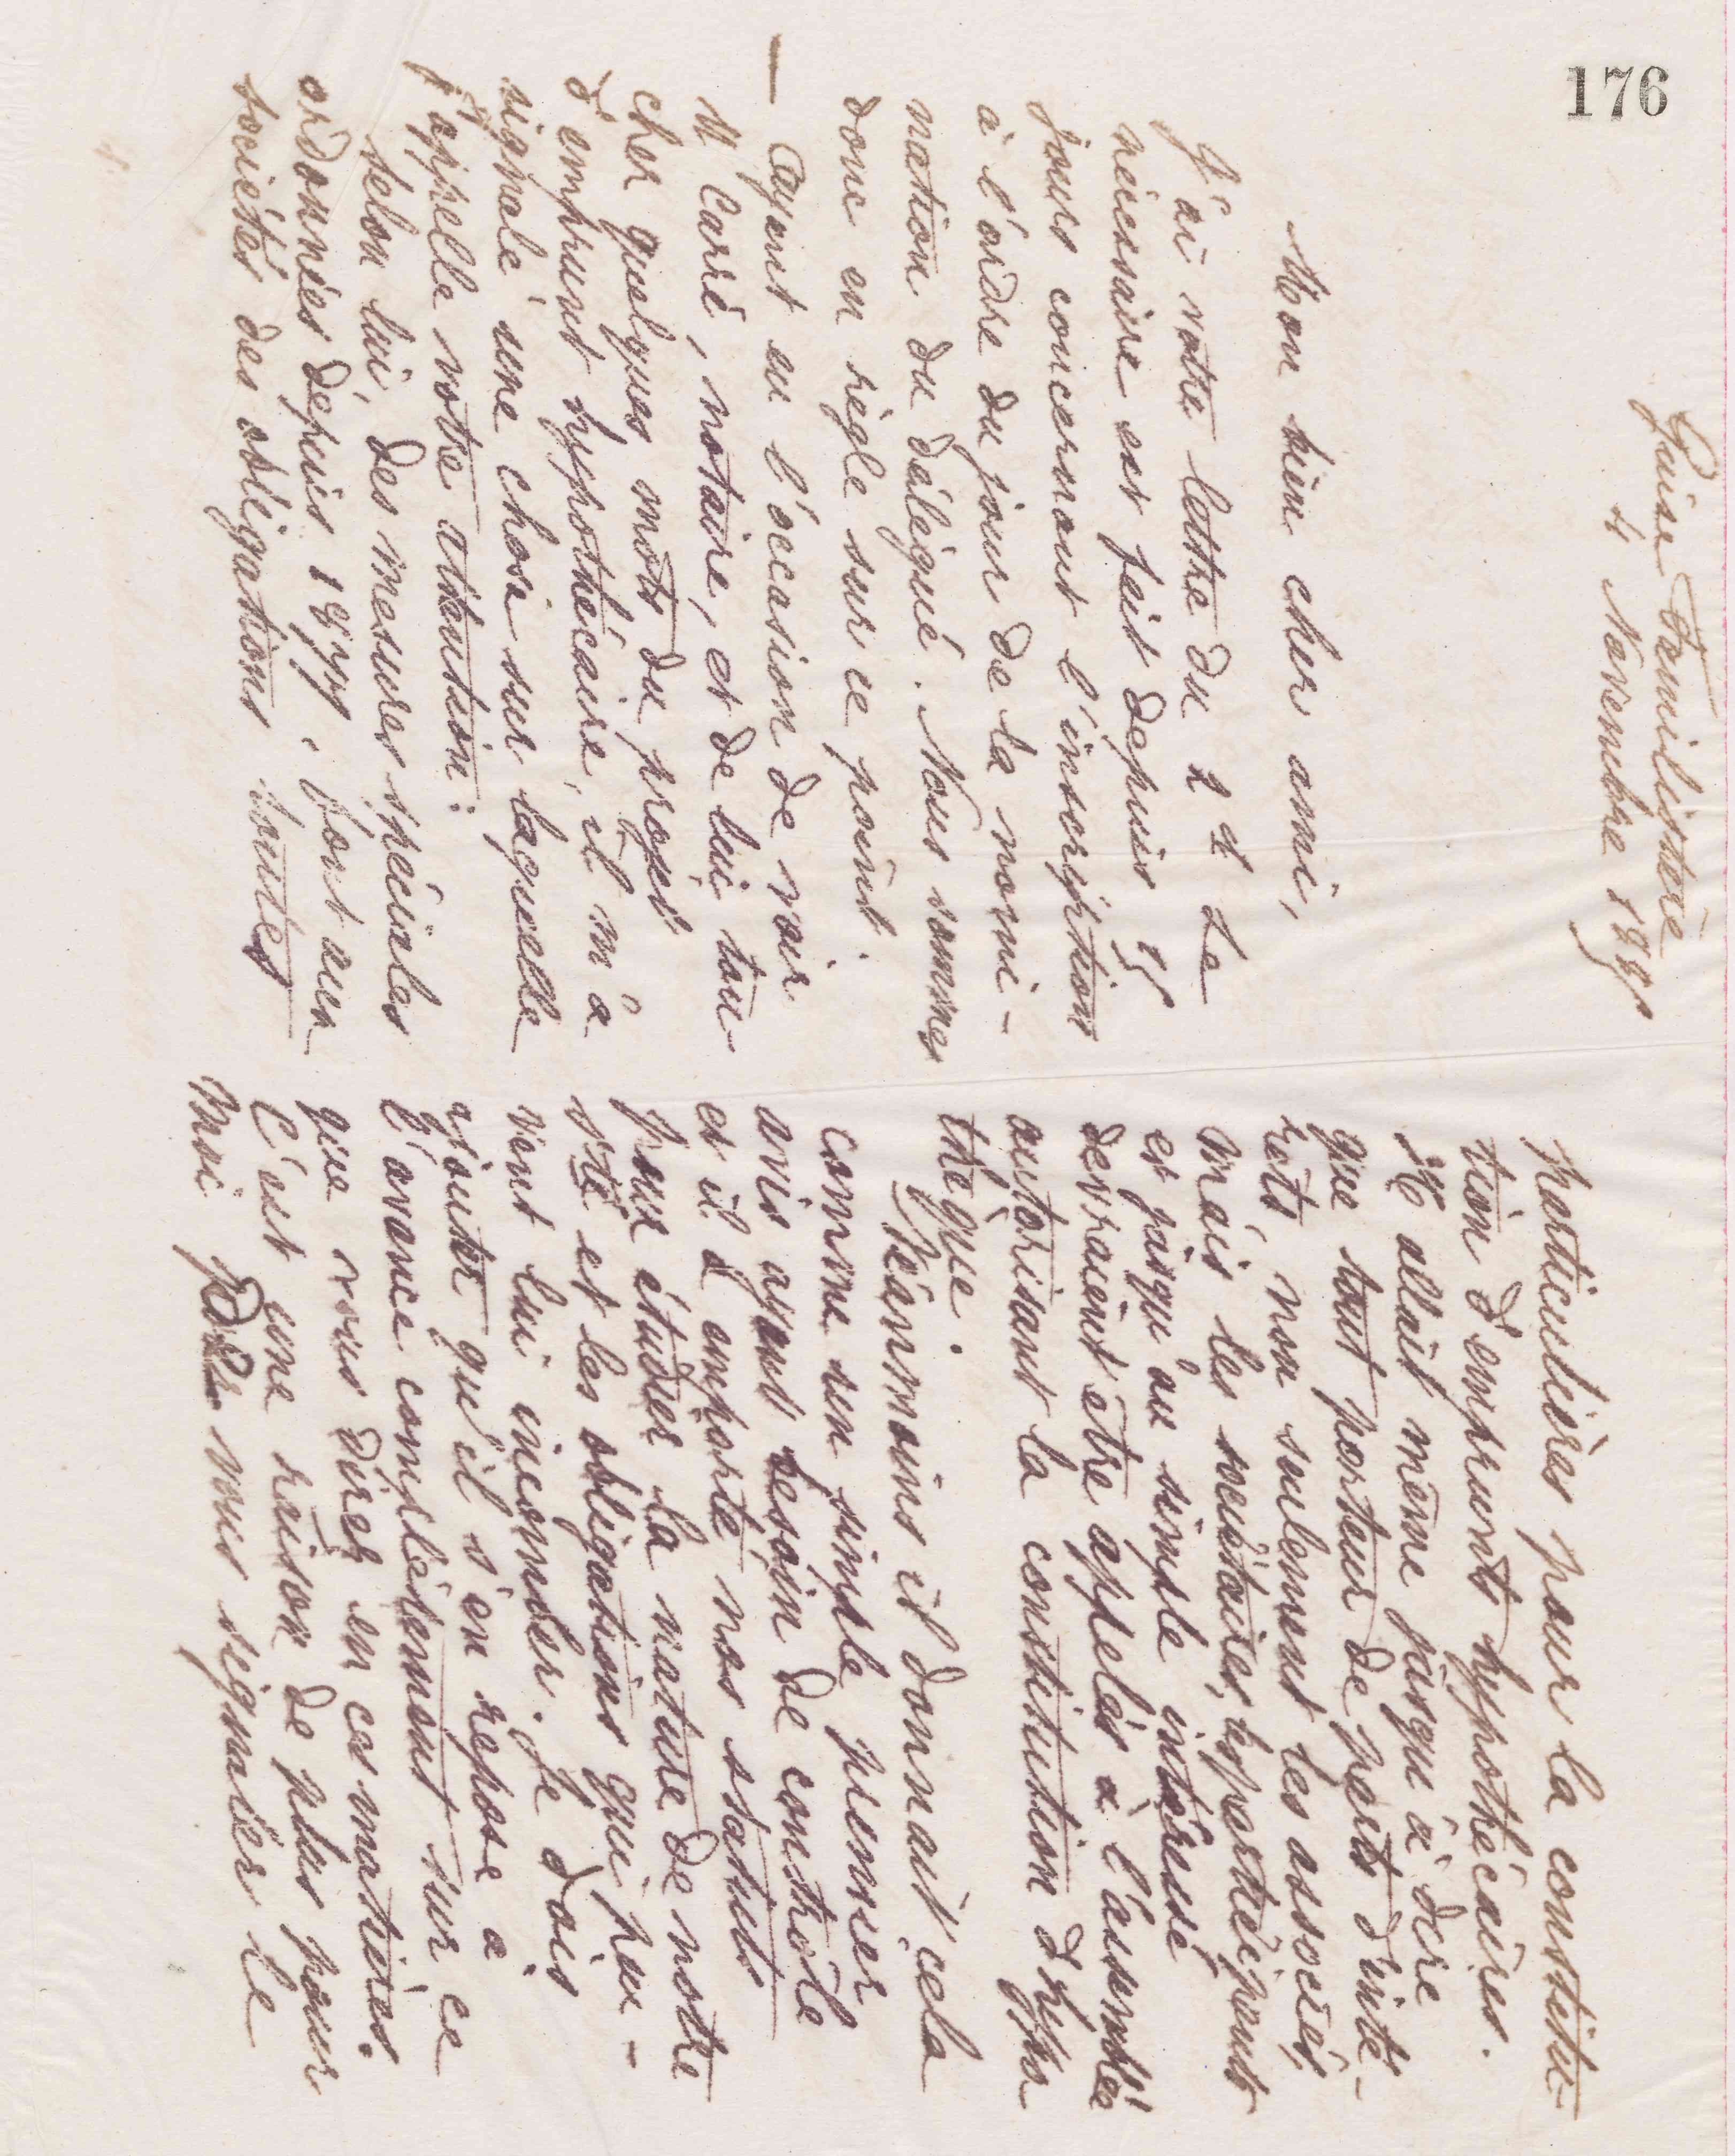 176
Guise Familistère
4 Novembre 1885
Mon bien cher ami,
J'ai votre lettre du 2 Le
nécessaire est fait depuis 15
jours concernant l'inscription
à l'ordre du jour de la nomi-
nation du délégué. Nous sommes
donc en règle sur ce point.
— Ayant eu l'occasion de voir
M Carré, notaire, et de lui tou-
cher quelques mots du projet
d'emprunt hypothécaire, il m'a
signalé une chose sur laquelle
j'appelle votre attention:
selon lui, des mesures spéciales
ordonnées depuis 1877, font aux
sociétés des obligations toutes
particulières pour la constitu-
tion d'emprunts hypothécaires.
Il allait même jusqu'à dire
que tout porteur de parts d'inté-
rêts, non seulement les associés,
mais les sociétaires, les participants
et jusqu'au simple intéressé
devraient être appelés à l'assemblée
autorisant la constitution d'hypo
thèque.
Néanmoins il donnait cela
comme un simple premier
avis ayant besoin de contrôle
et il a emporté nos statuts
pour étudier la nature de notre
sté et les obligations qui peu-
vent lui incomber. Je dois
ajouter qu'il s'en repose à
l'avance complètement sur ce
que vous direz en ces matières.
C'est une raison de plus pour
moi de vous signaler le